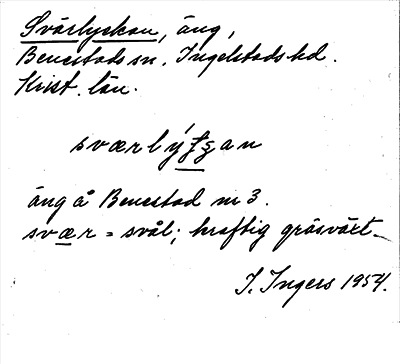 Svärlyckan, äng,
Benestads sn. Ingelstads hd.
Krist. län.
äng å Benestad nr 3.
svær = svål; kraftig gräsväxt
I. Ingers 1954.